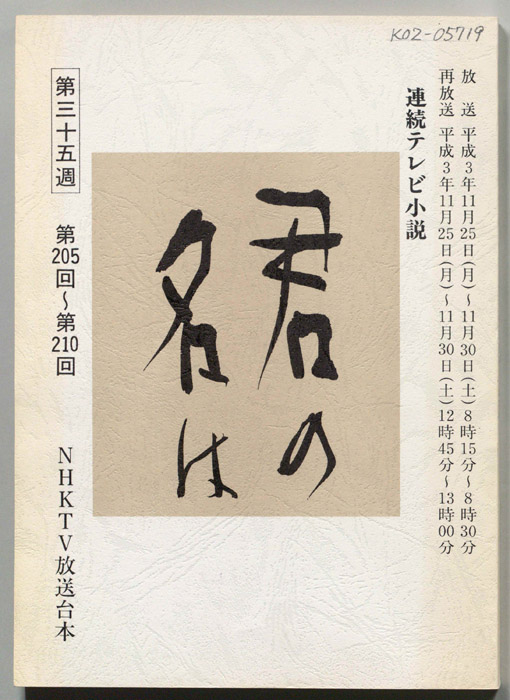 K02-05719
放　送 平成3年11月25日(月)～11月30日(土) 8時15分～8時30分
再放送 平成3年11月25日(月)～11月30日(土) 12時45分～13時00分
連続テレビ小説
君の
名は
第三十五週
第205回～第210回
NHKTV放送台本